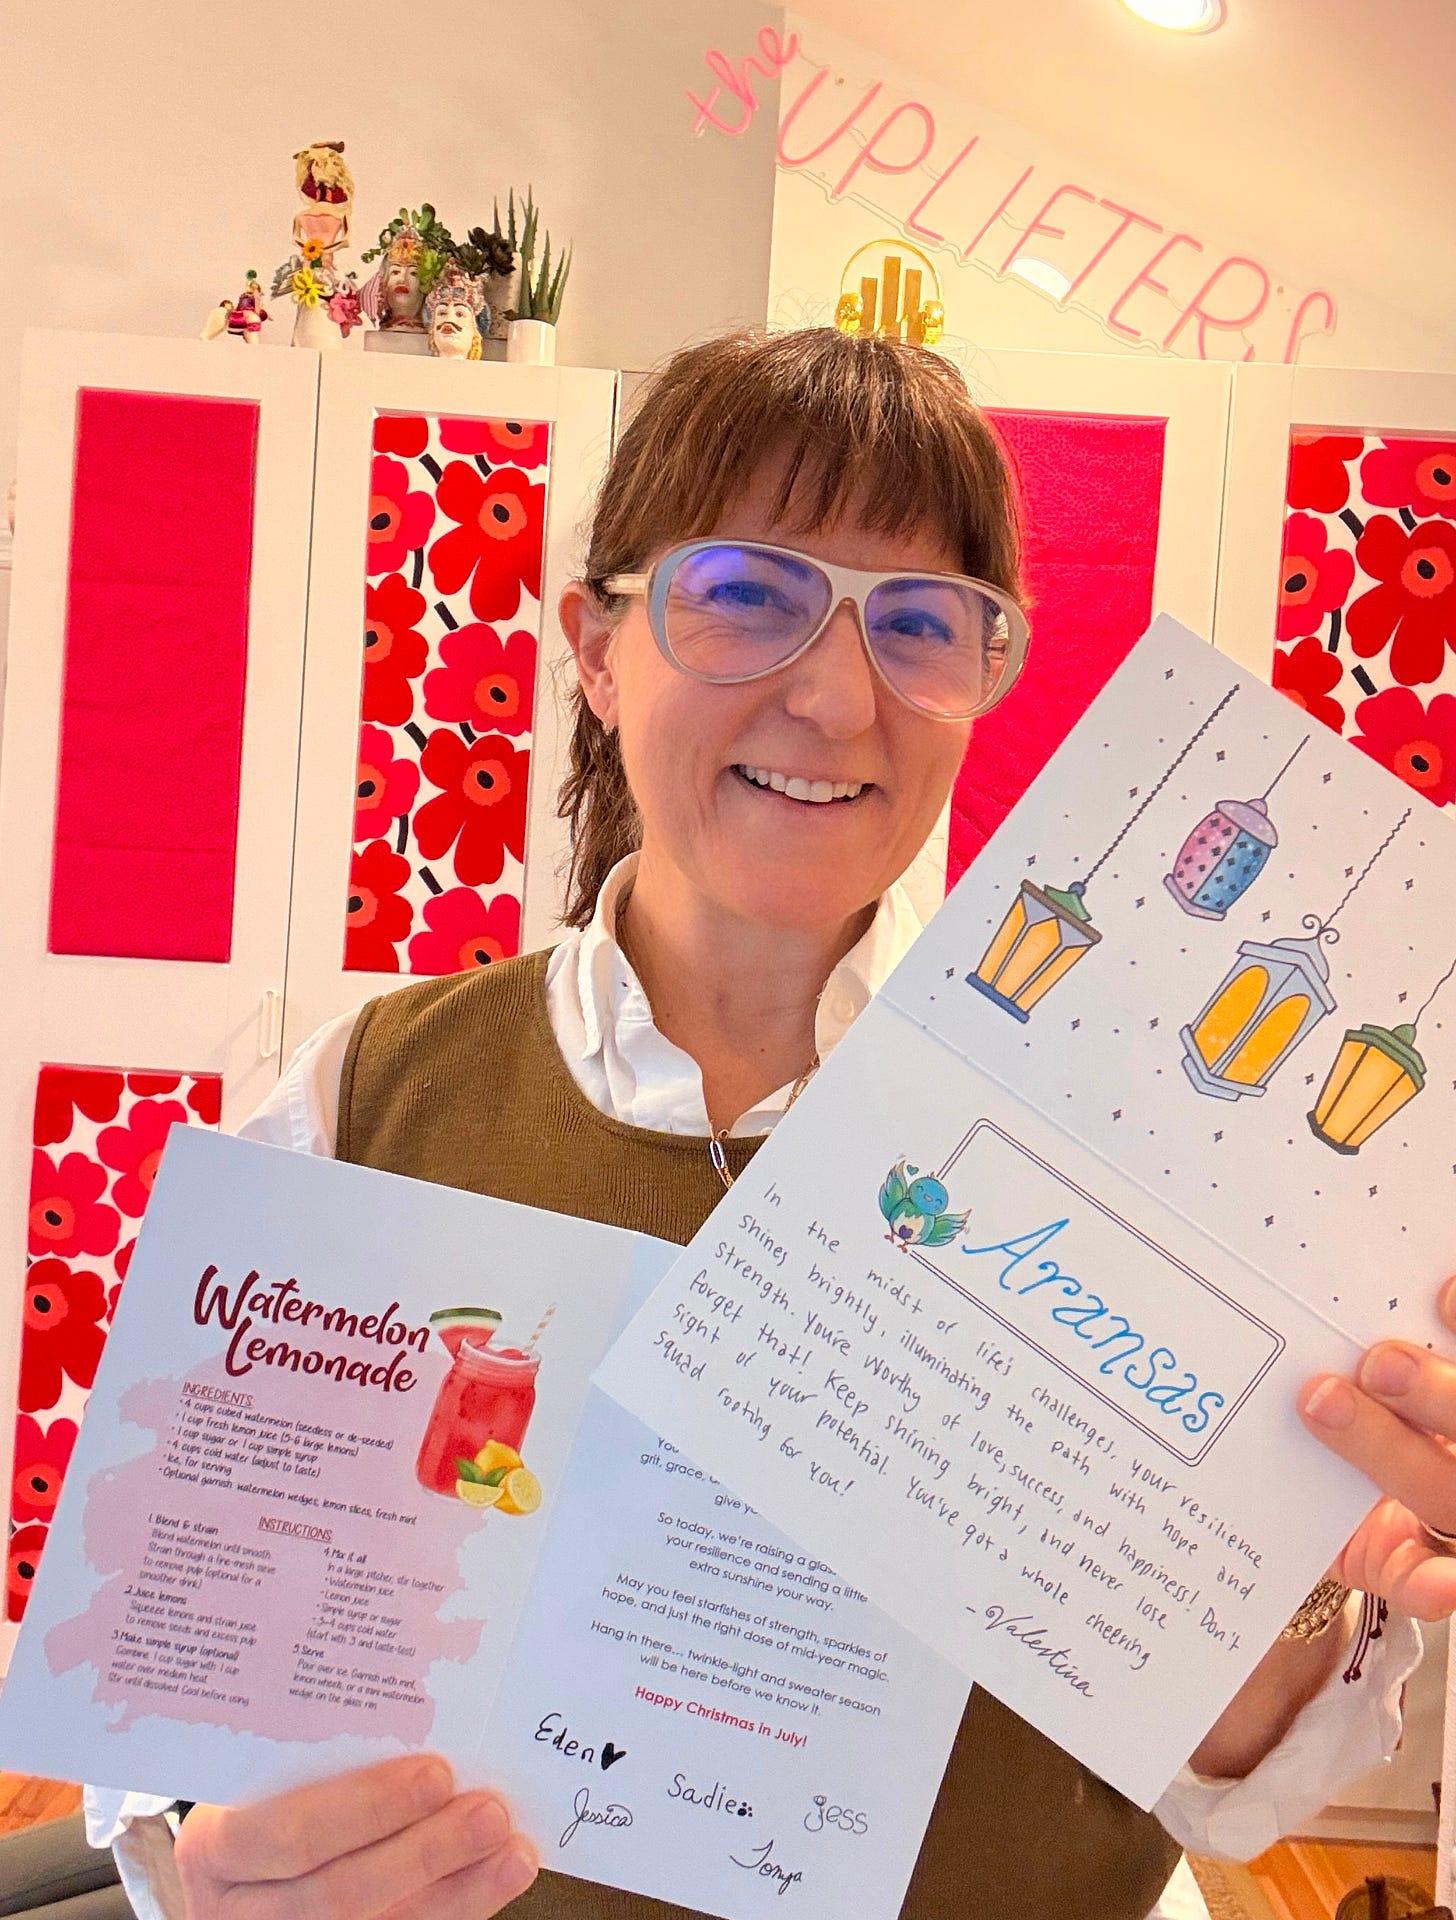 the UPLIFTERS
Watermelon
Lemonade
INGREDIENTS:
• 4 cups cubed watermelon (seedless or de-seeded)
• 1 cup fresh lemon juice (5-6 large lemons)
• 1 cup sugar or 1 cup simple syrup
• 4 cups cold water (adjust to taste)
• Ice, for serving
• Optional garnish: watermelon wedges, lemon slices, fresh mint
INSTRUCTIONS
1. Blend & strain
Blend watermelon until smooth.
Strain through a fine-mesh sieve
to remove pulp (optional for a
smoother drink)
2. Juice lemons
Squeeze lemons and strain juice
to remove seeds and excess pulp
3. Make simple syrup (optional)
Combine 1 cup sugar with 1 cup
water over medium heat.
Stir until dissolved. Cool before using
4. Mix it all
In a large pitcher, stir together
• Watermelon juice
• Lemon juice
• Simple syrup or sugar
• 3-4 cups cold water
(start with 3 and taste-test)
5. Serve
Pour over ice. Garnish with mint,
lemon wheels, or a mini watermelon
wedge on the glass rim
grit, grace,
give
So today, we're raising a
your resilience and sending a little
extra sunshine your way.
May you feel starfishes of strength, sparkles of
hope, and just the right dose of mid-year magic.
Hang in there... twinkle-light and sweater season
will be here before we know it.
Happy Christmas in July!
Eden
Sadie
Jess
Jessica
Tonya
Aransas
In the midst of life's challenges, your resilience
shines brightly, illuminating the path with hope and
strength. You're worthy of love, success, and happiness! Don't
forget that! Keep shining bright, and never lose
sight of your potential. You've got a whole cheering
squad rooting for you!
- Valestina